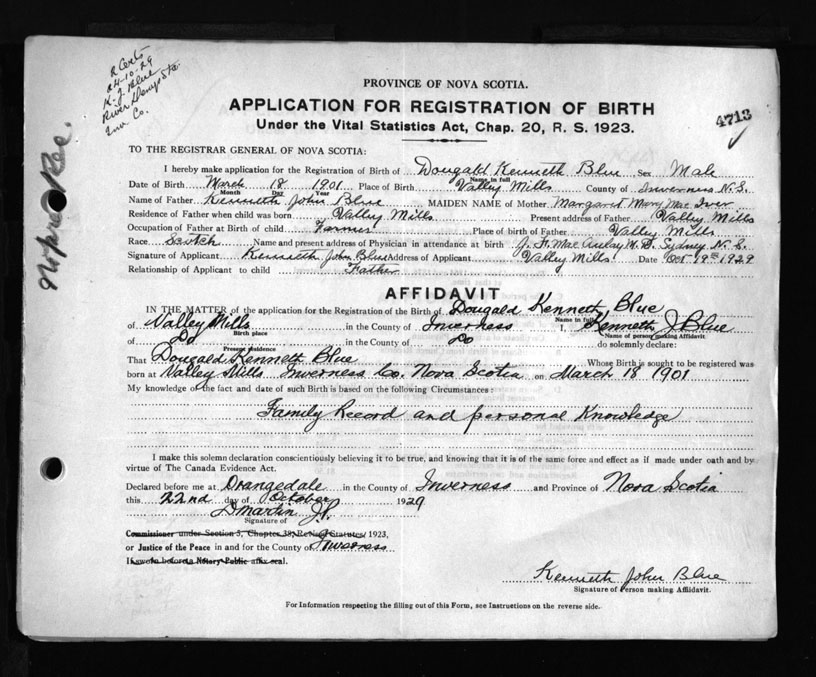 2 Certs
24-10-29
K. J. Blue
River Denys Sta.
Inv Co.
No pre Rec.
4713
PROVINCE OF NOVA SCOTIA.
APPLICATION FOR REGISTRATION OF BIRTH
Under the Vital Statistics Act, Chap. 20, R. S. 1923.
TO THE REGISTRAR GENERAL OF NOVA SCOTIA:
I hereby make application for the Registration of Birth of Dougald Kenneth Blue Sex Male
Name in full
Date of Birth March 18 1901 Place of Birth Valley Mills County of Inverness N.S.
Month Day Year
Name of Father Kenneth John Blue MAIDEN NAME of Mother Margaret Mary Mac Iver
Residence of Father when child was born Valley Mills Present address of Father Valley Mills
Occupation of Father at Birth of child Farmer Place of birth of Father Valley Mills
Race Scotch Name and present address of Physician in attendance at birth J. H. Mac Aulay M. D. Sydney N. S.
Signature of Applicant Kenneth John Blue Address of Applicant Valley Mills Date Oct 19th 1929
Relationship of Applicant to child Father
AFFIDAVIT
IN THE MATTER of the application for the Registration of the Birth of Dougald Kenneth Blue
Name in full
of Valley Mills in the County of Inverness I, Kenneth J. Blue
Birth place Name of person making Affidavit
of Do in the County of Do do solemnly declare:
Present residence
That Dougald Kenneth Blue Whose Birth is sought to be registered was
born at Valley Mills Inverness Co. Nova Scotia on March 18 1901
My knowledge of the fact and date of such Birth is based on the following Circumstances:
Family Record and personal Knowledge
I make this solemn declaration conscientiously believing it to be true, and knowing that it is of the same force and effect as if made under oath and by
virtue of The Canada Evidence Act.
Declared before me at Orangedale in the County of Inverness and Province of Nova Scotia
this 22nd day of October 1929
D Martin J.P.
Signature of
Commissioner under Section 3, Chapter 38, Revised Statutes, 1923,
or Justice of the Peace in and for the County of Inverness
If sworn before a Notary Public affix seal.
Kenneth John Blue
Signature of Person making Affidavit.
For Information respecting the filling out of this Form, see Instructions on the reverse side.